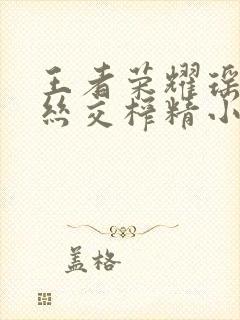 王者荣耀瑶
丝交榨精小
盖格